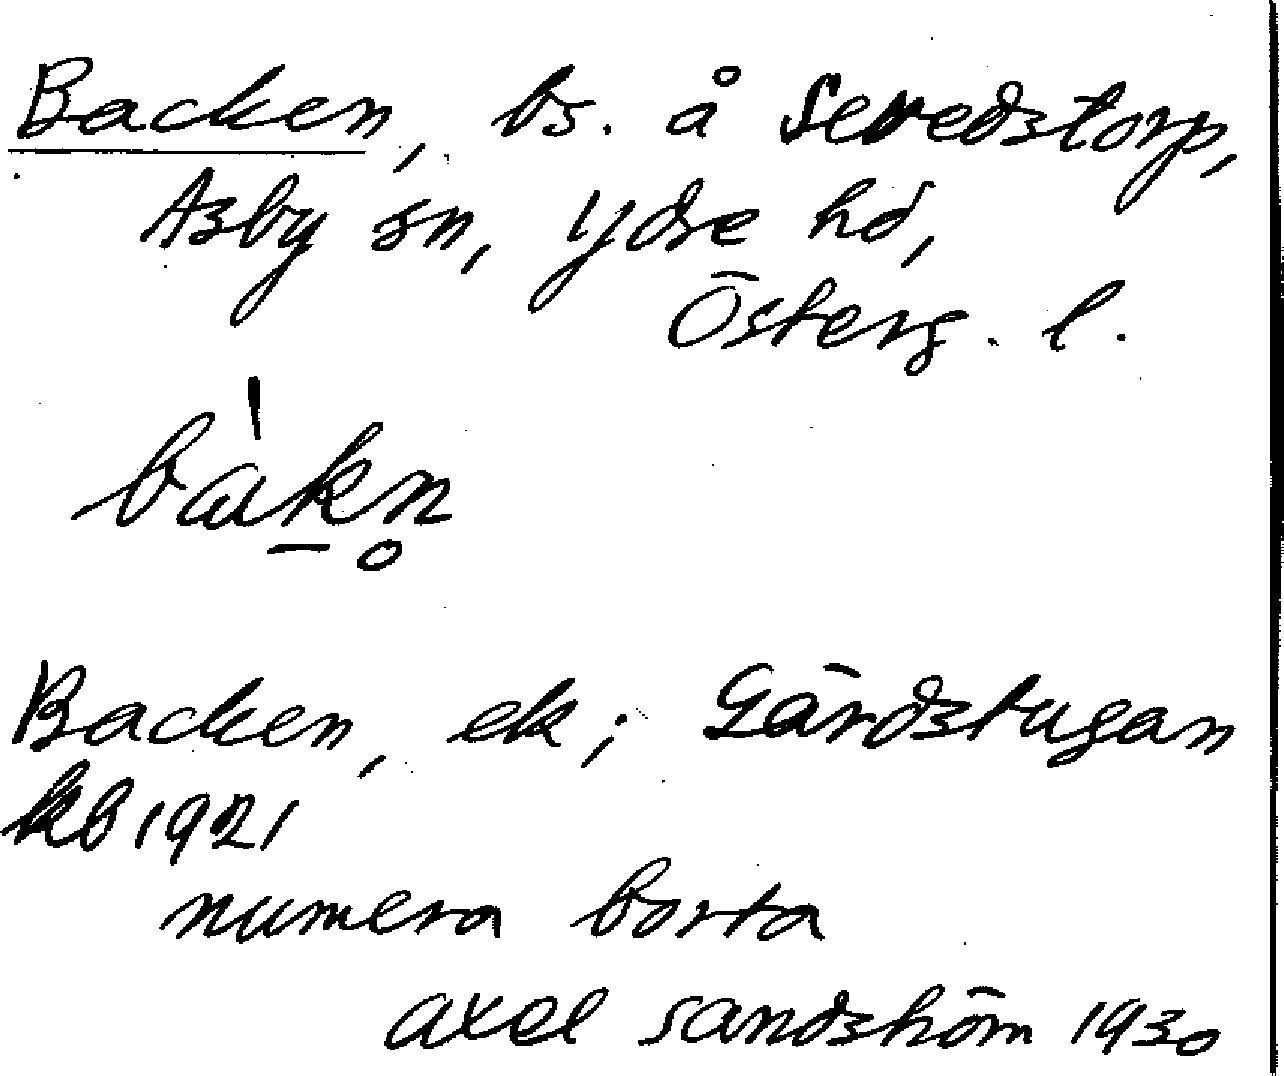 Backen, bs. å Sevedstorp,
Asby sn, Ydre hd,
Österg. l.
bàkn̥
Backen, ek; Gärdstugan
kb 1921
numera borta
Axel Sandström 1930